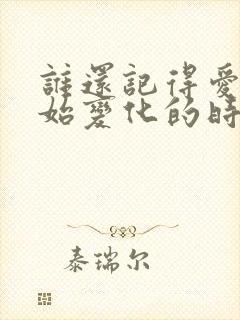 誰還記得愛
始變化的時
泰瑞尔